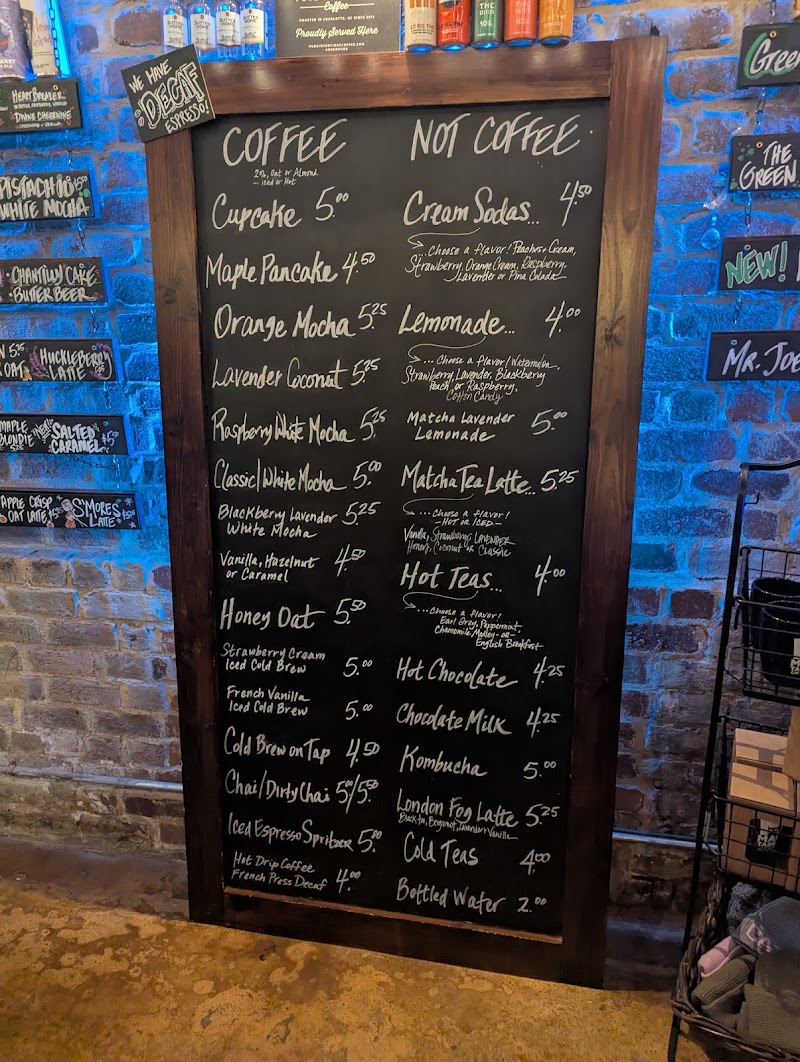 Coffee
ROASTED IN CHARLOTTE, NC SINCE 2017
Proudly Served Here
WE HAVE
DECAF
ESPRESSO!
COFFEE
2%, Oat or Almond
- iced or Hot
Cupcake 5.00
Maple Pancake 4.50
Orange Mocha 5.25
Lavender Coconut 5.25
Raspberry White Mocha 5.25
Classic/White Mocha 5.00
Blackberry Lavender
White Mocha 5.25
Vanilla, Hazelnut
or Caramel 4.50
Honey Oat 5.50
Strawberry Cream
Iced Cold Brew 5.00
French Vanilla
Iced Cold Brew 5.00
Cold Brew on Tap 4.50
Chai/Dirty Chai 5.00/5.50
Iced Espresso Spritzer 5.00
Hot Drip Coffee
French Press Decaf 4.00
NOT COFFEE
Cream Sodas... 4.50
...Choose a flavor! Peaches + Cream,
Strawberry, Orange Cream, Raspberry,
Lavender or Pina Colada
Lemonade... 4.00
...Choose a flavor! Watermelon,
Strawberry, Lavender, Blackberry
Peach or Raspberry,
Cotton Candy
Matcha Lavender
Lemonade 5.00
Matcha Tea Latte... 5.25
...Choose a flavor!
-HOT or ICED-
Vanilla, Strawberry, LAVENDER
Honey, Coconut or CLASSIC
HOT TEAS... 4.00
...Choose a flavor!
Earl Grey, Peppermint,
Chamomile Medley -or-
English Breakfast
Hot Chocolate 4.25
Chocolate Milk 4.25
Kombucha 5.00
London Fog Latte 5.25
Black tea, Bergamot, Lavender + Vanilla
Cold Teas 4.00
Bottled Water 2.00
HEARTBREAKER
PISTACHIO
WHITE MOCHA
CHANTILLY CAKE
BUTTER BEER
5.25
HUCKLEBERRY
LATTE
MAPLE
BLONDIE
New!
SALTED
CARAMEL
APPLE CRISP
OAT LATTE
S'MORES
LATTE
THE
GREEN
NEW!
MR. JOE